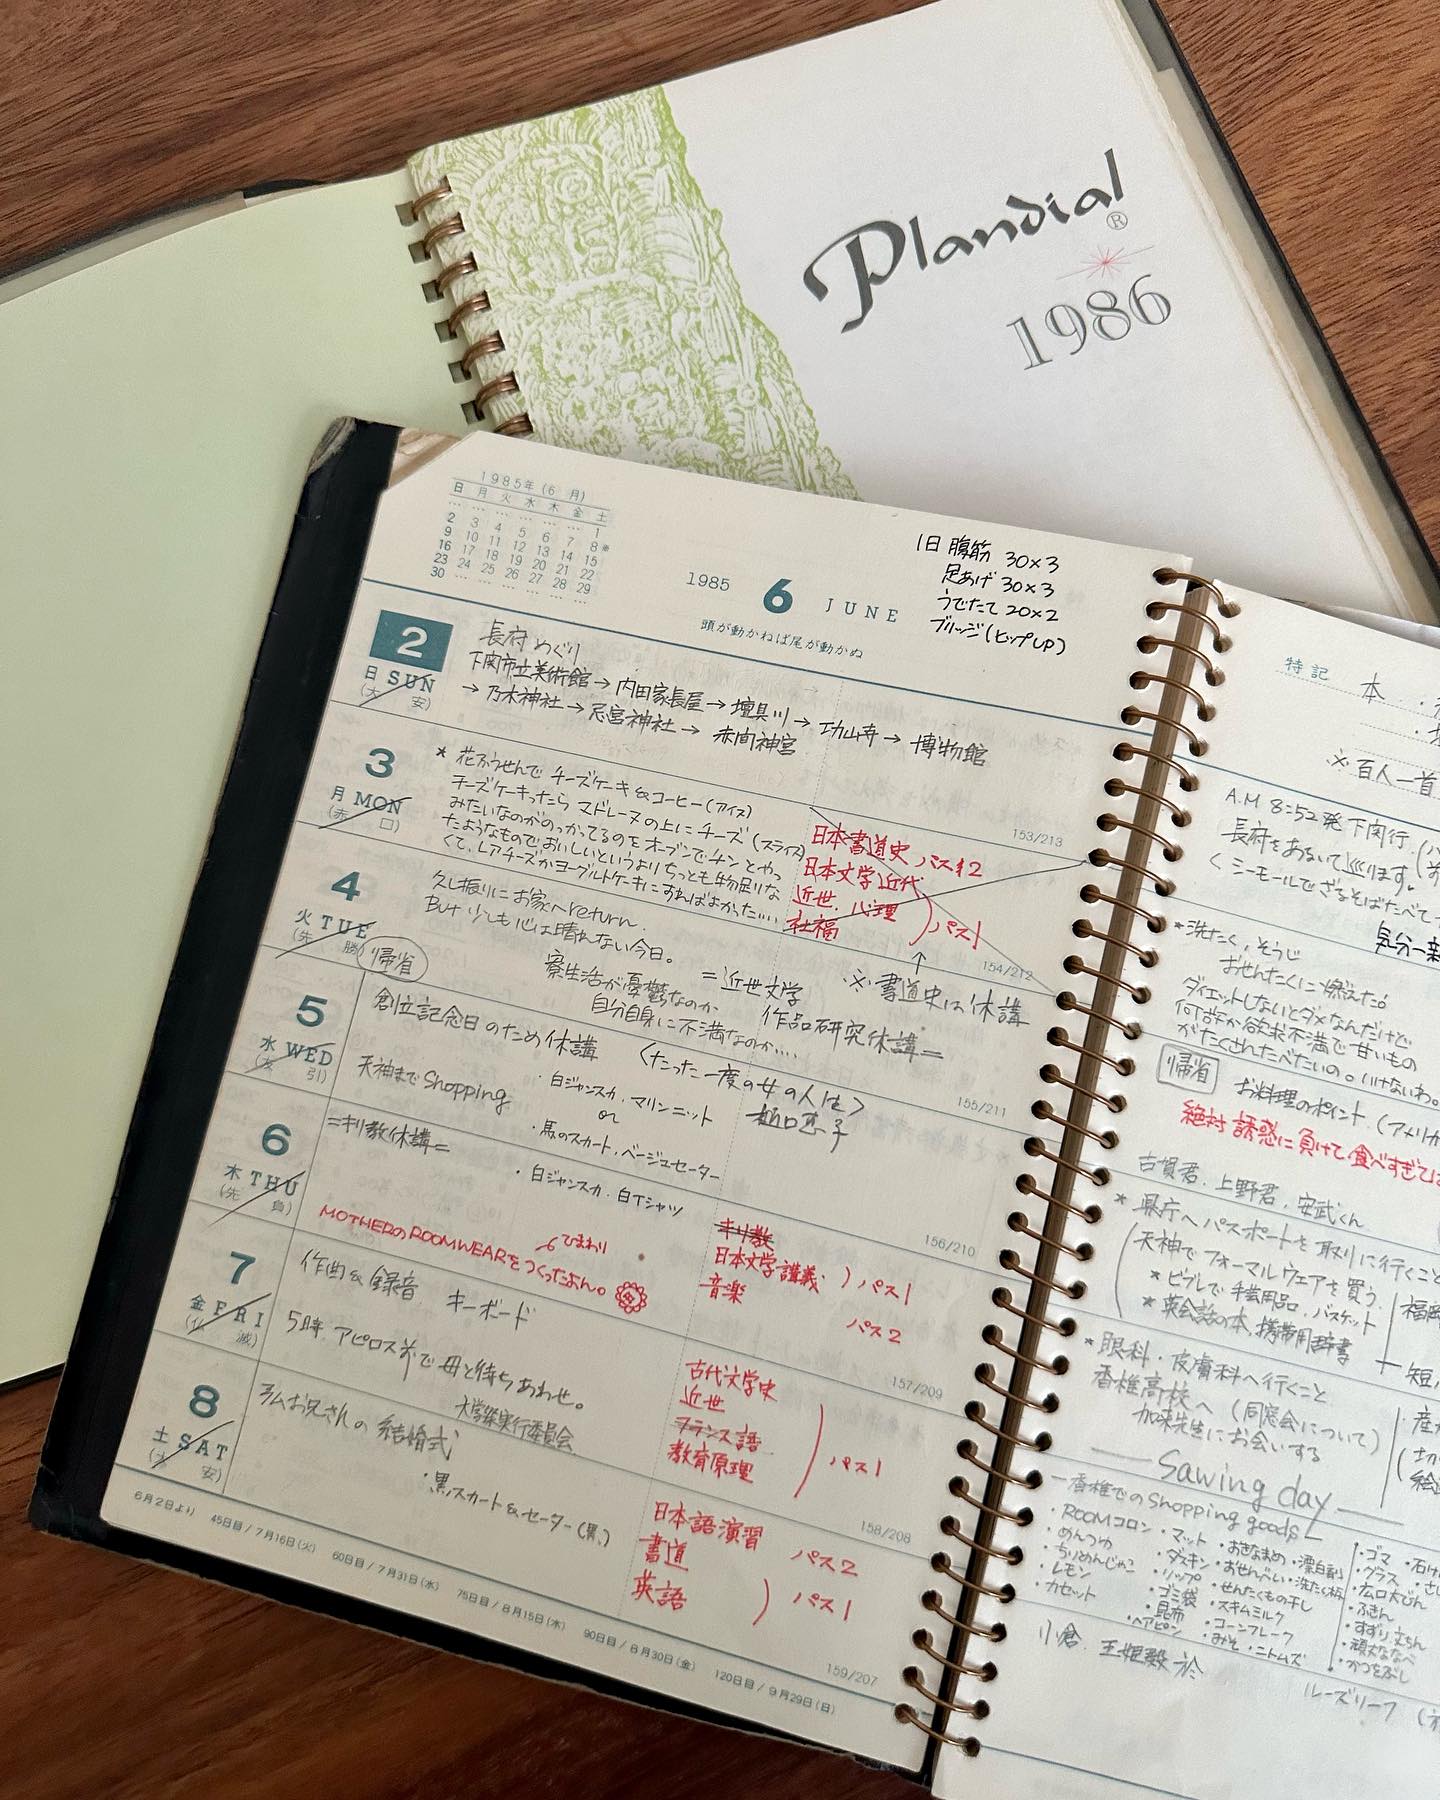 Plandial®
1986
1985年(6月)
日 月 火 水 木 金 土
… … … … … … 1
2 3 4 5 6 7 8※
9 10 11 12 13 14 15
16 17 18 19 20 21 22
23 24 25 26 27 28 29
30 … … … … … …
1985 6 JUNE
頭が動かねば尾が動かぬ
1日 腹筋 30×3
足あげ 30×3
うでたて 20×2
ブリッジ(ヒップUP)
2
日 SUN
(大安)
長府めぐり
下関市立美術館→内田家長屋→壇具川→功山寺→博物館
→乃木神社→忌宮神社→赤間神宮
153/213
3
月 MON
(赤口)
* 花ふうせんで チーズケーキ&コーヒー(アイス)
チーズケーキったら マドレーヌの上にチーズ(スライス)
みたいなのがのっかってるのをオーブンでチンとやっ
たようなものでおいしいというよりちっとも物足りな
くて、レアチーズかヨーグルトケーキにすればよかった….
日本書道史 パス12
日本文学近代
近世.心理
社福
)パス1
154/212
4
火 TUE
(先勝)
帰省
久し振りにお家へreturn.
But 少しも心は晴れない今日。
寮生活が憂鬱なのか
自分自身に不満なのか….
=近世文学
作品研究休講=
↑
※書道史は休講
155/211
5
水 WED
(友引)
創立記念日のため休講
<たった一度の女の人生>
樋口恵子
天神までShopping
・白ジャンスカ.マリンニット
or
・馬のスカート.ベージュセーター
156/210
6
木 THU
(先負)
=キリ教休講=
・白ジャンスカ.白Tシャツ
MOTHERのROOMWEARをつくったよん。
ひまわり
キリ教
日本文学講義
音楽
)パス1
パス2
157/209
7
金 FRI
(仏滅)
作曲&録音 キーボード
5時 アピロス前で母と待ちあわせ。
大学祭実行委員会
古代文学史
近世
フランス語
教育原理
)パス1
158/208
8
土 SAT
(大安)
弘お兄さんの結婚式
・黒スカート&セーター(黒)
日本語演習 パス2
書道
英語
)パス1
159/207
6月2日より 45日目/7月16日(火) 60日目/7月31日(水) 75日目/8月15日(木) 90日目/8月30日(金) 120日目/9月29日(日)
特記
本
※百人一首
A.M 8:52発 下関行
長府をあるいて巡ります。
くシーモールでざるそばたべて
気分一新
*洗たく.そうじ
おせんたくに燃えた。
ダイエットしないとダメなんだけど
何故か欲求不満で甘いもの
がたくさんたべたいの。いけないわ。
帰省
お料理のポイント.(アメリカ
絶対 誘惑に負けて食べすぎては
古賀君.上野君.安武くん
*県庁へパスポートを取りに行くこと
天神でフォーマルウェアを買う.
*ビブレで手芸用品.バスケット
*英会話の本.携帯用辞書
福岡
短
*眼科・皮膚科へ行くこと
香椎高校へ(同窓会について)
加来先生にお会いする
Sawing day
香椎でのShopping goods
・ROOMコロン
・めんつゆ
・ちりめんじゃこ
・レモン
・カセット
・マット
・ダスキン
・リップ
・ゴミ袋
・昆布
・ヘアピン
・おきなまめ
・おせんべい
・せんたくもの干し
・スキムミルク
・コーンフレーク
・みそ・ニトムズ
・漂白剤
・ゴマ
・グラス
・広口大びん
・ふきん
・すずり
・かつをぶし
小倉.王姫殿 於
ルーズリーフ